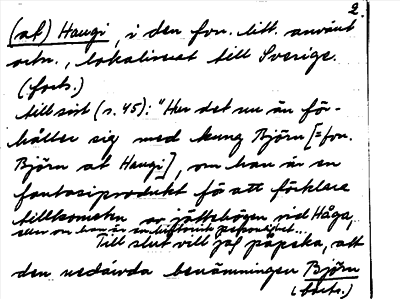 2.
(at) Haugi, i den fvn. litt. använt
ortn., lokaliserat till Sverige.
(forts.)
till sist (s. 45): "Hur det nu än för-
håller sig med kung Björn [= fvn.
Björn at Haugi], om han är en
fantasiprodukt för att förklara
tillkomsten av jättehögen vid Håga,
eller om han är en historisk personlighet...
Till slut vill jag påpeka, att
den nedärvda benämningen Björn
(forts.)